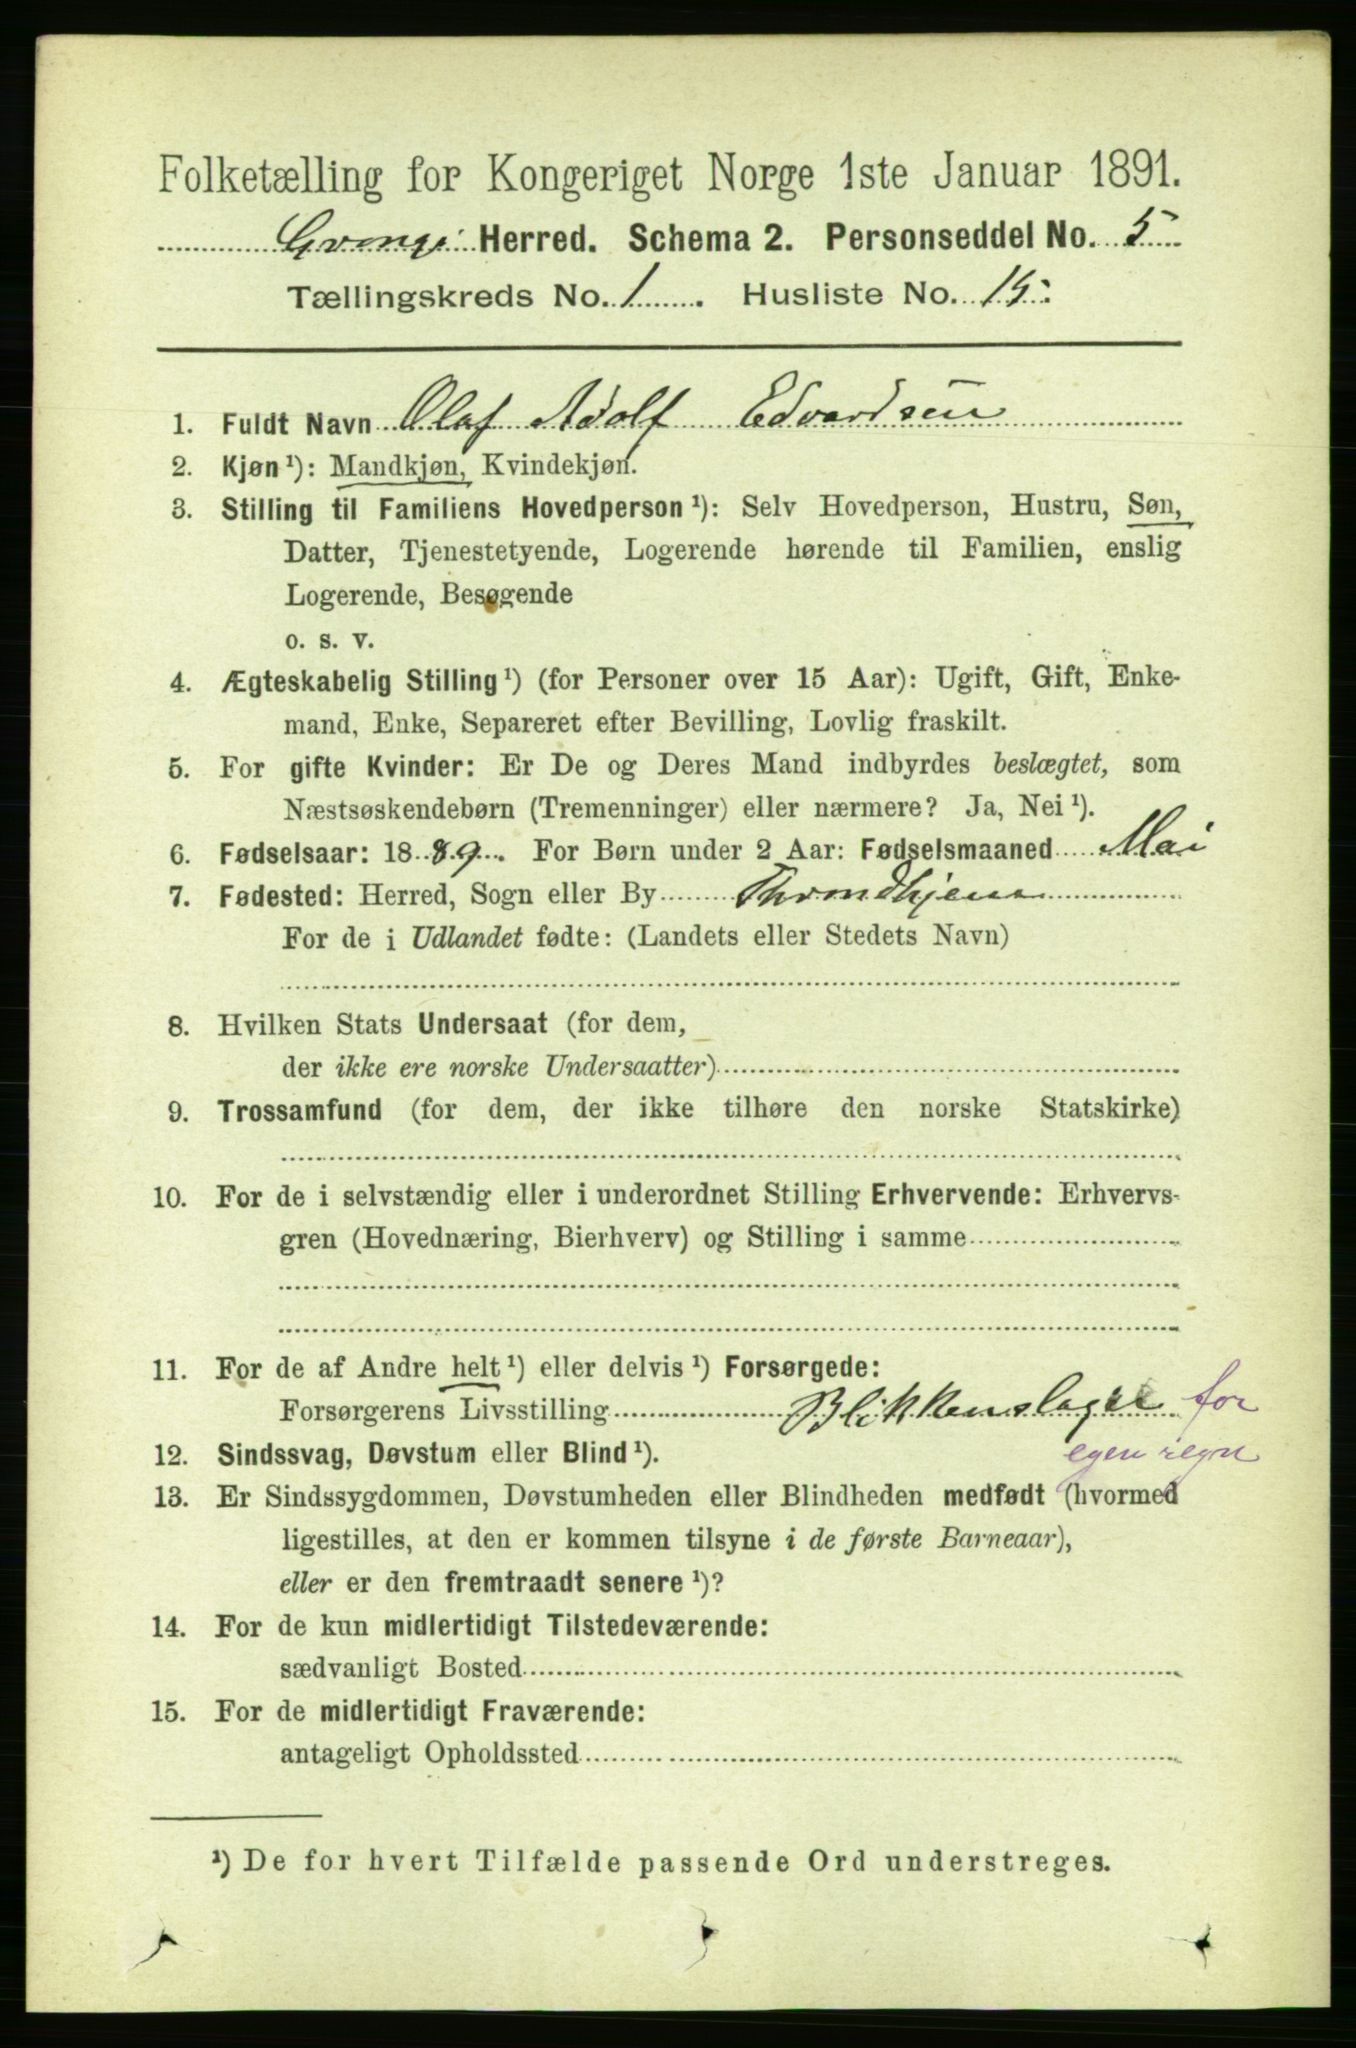 Folketælling for Kongeriget Norge 1ste Januar 1891.
Grong Herred. Schema 2. Personseddel No. 5
Tællingskreds No. 1. Husliste No. 15.
1. Fuldt Navn Olaf Adolf Edvardsen
2. Kjøn ¹): Mandkjøn, Kvindekjøn.
3. Stilling til Familiens Hovedperson ¹): Selv Hovedperson, Hustru, Søn,
Datter, Tjenestetyende, Logerende hørende til Familien, enslig
Logerende, Besøgende
o. s. v.
4. Ægteskabelig Stilling ¹) (for Personer over 15 Aar): Ugift, Gift, Enke-
mand, Enke, Separeret efter Bevilling, Lovlig fraskilt.
5. For gifte Kvinder: Er De og Deres Mand indbyrdes beslægtet, som
Næstsøskendebørn (Tremenninger) eller nærmere? Ja, Nei ¹).
6. Fødselsaar: 1889. For Børn under 2 Aar: Fødselsmaaned Mai
7. Fødested: Herred, Sogn eller By Throndhjem
For de i Udlandet fødte: (Landets eller Stedets Navn)
8. Hvilken Stats Undersaat (for dem,
der ikke ere norske Undersaatter)
9. Trossamfund (for dem, der ikke tilhøre den norske Statskirke)
10. For de i selvstændig eller i underordnet Stilling Erhvervende: Erhvervs-
gren (Hovednæring, Bierhverv) og Stilling i samme
11. For de af Andre helt ¹) eller delvis ¹) Forsørgede:
Forsørgerens Livsstilling Blikkenslager for
egen regn
12. Sindssvag, Døvstum eller Blind ¹).
13. Er Sindssygdommen, Døvstumheden eller Blindheden medfødt (hvormed
ligestilles, at den er kommen tilsyne i de første Barneaar),
eller er den fremtraadt senere ¹)?
14. For de kun midlertidigt Tilstedeværende:
sædvanligt Bosted
15. For de midlertidigt Fraværende:
antageligt Opholdssted
¹) De for hvert Tilfælde passende Ord understreges.